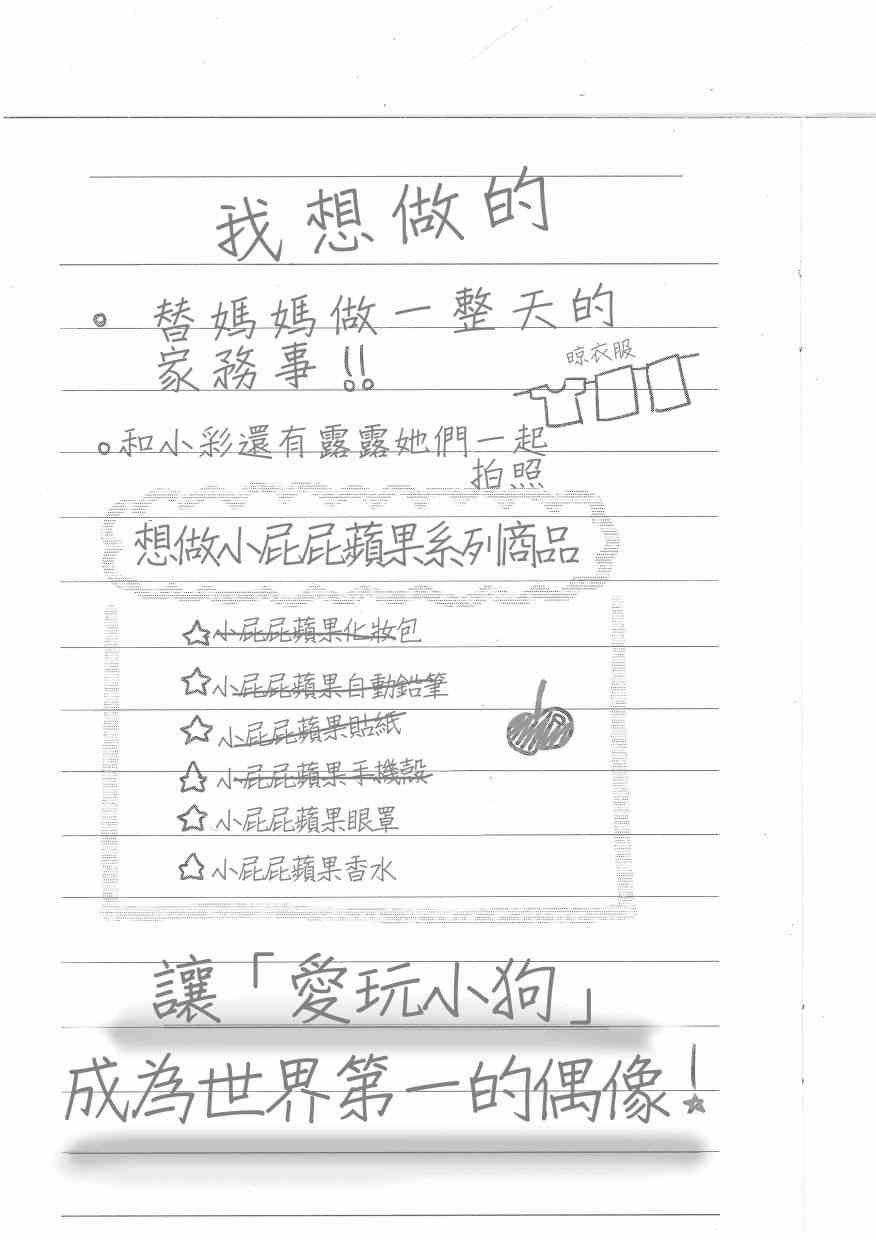 我想做的
替媽媽做一整天的
家務事!!
晾衣服
和小彩還有露露她們一起
拍照
想做小屁屁蘋果系列商品
小屁屁蘋果化妝包
小屁屁蘋果自動鉛筆
小屁屁蘋果貼紙
小屁屁蘋果手機殼
小屁屁蘋果眼罩
小屁屁蘋果香水
讓「愛玩小狗」
成為世界第一的偶像!